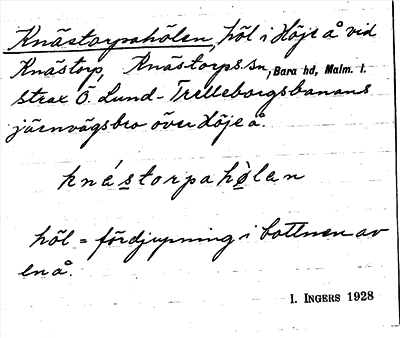 Knästorpahölen, höl i Höje å vid
Knästorp, Knästorps sn, Bara hd, Malm. l.
strax Ö. Lund-Trelleborgsbanans
järnvägsbro över Höje å.
knästorpahølan
höl = fördjupning i bottnen av
en å.
I. INGERS 1928